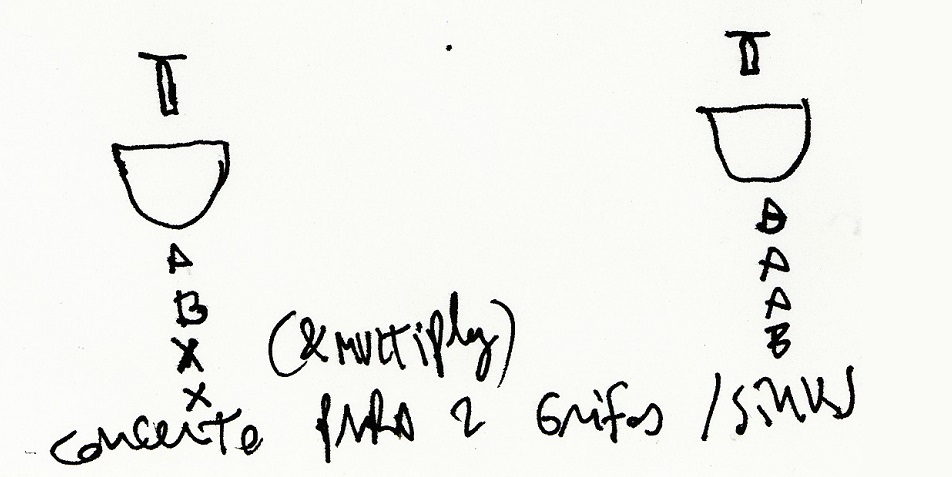 A
B
X
X
B
A
A
B
(& multiply)
concierto PARA 2 Grifos / sinks